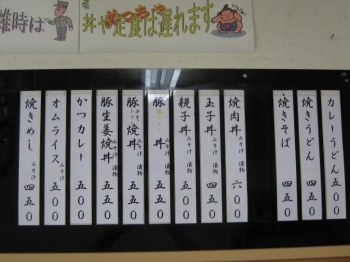 雑時は
丼や定食は遅れます
カレーうどん 五五0
焼きうどん 五00
焼きそば 四五0
焼肉丼 みそ汁 漬物 六00
玉子丼 みそ汁 漬物 四五0
親子丼 みそ汁 漬物 五00
豚丼 みそ汁 漬物 五00
豚焼丼 みそ汁 漬物 五五0
豚生姜焼丼 みそ汁 漬物 五五0
かつカレー 五五0
オムライス みそ汁 五五0
焼きめし みそ汁 四五0